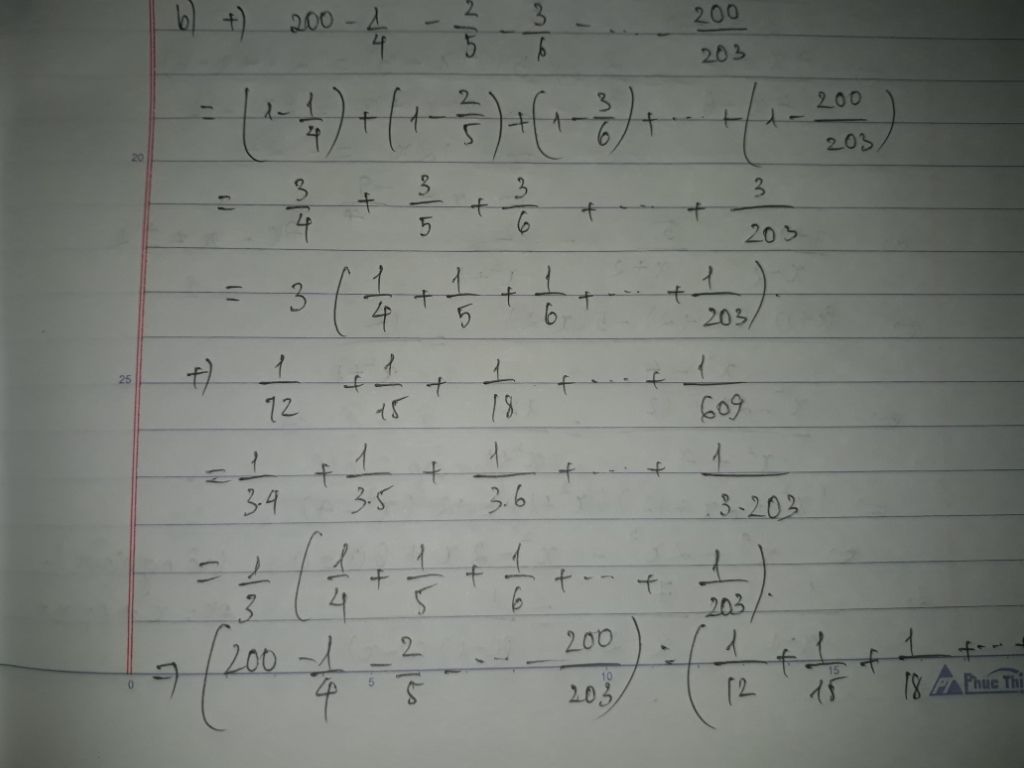 b) +) 200 - 1/4 - 2/5 - 3/6 - ... - 200/203
= (1 - 1/4) + (1 - 2/5) + (1 - 3/6) + ... + (1 - 200/203)
20
= 3/4 + 3/5 + 3/6 + ... + 3/203
= 3 (1/4 + 1/5 + 1/6 + ... + 1/203).
25
+) 1/12 + 1/15 + 1/18 + ... + 1/609
= 1/3.4 + 1/3.5 + 1/3.6 + ... + 1/3.203
= 1/3 (1/4 + 1/5 + 1/6 + ... + 1/203).
=> (200 - 1/4 - 2/5 - ... - 200/203) : (1/12 + 1/15 + 1/18 + ... +
0 5 10 15 Phuc Thi